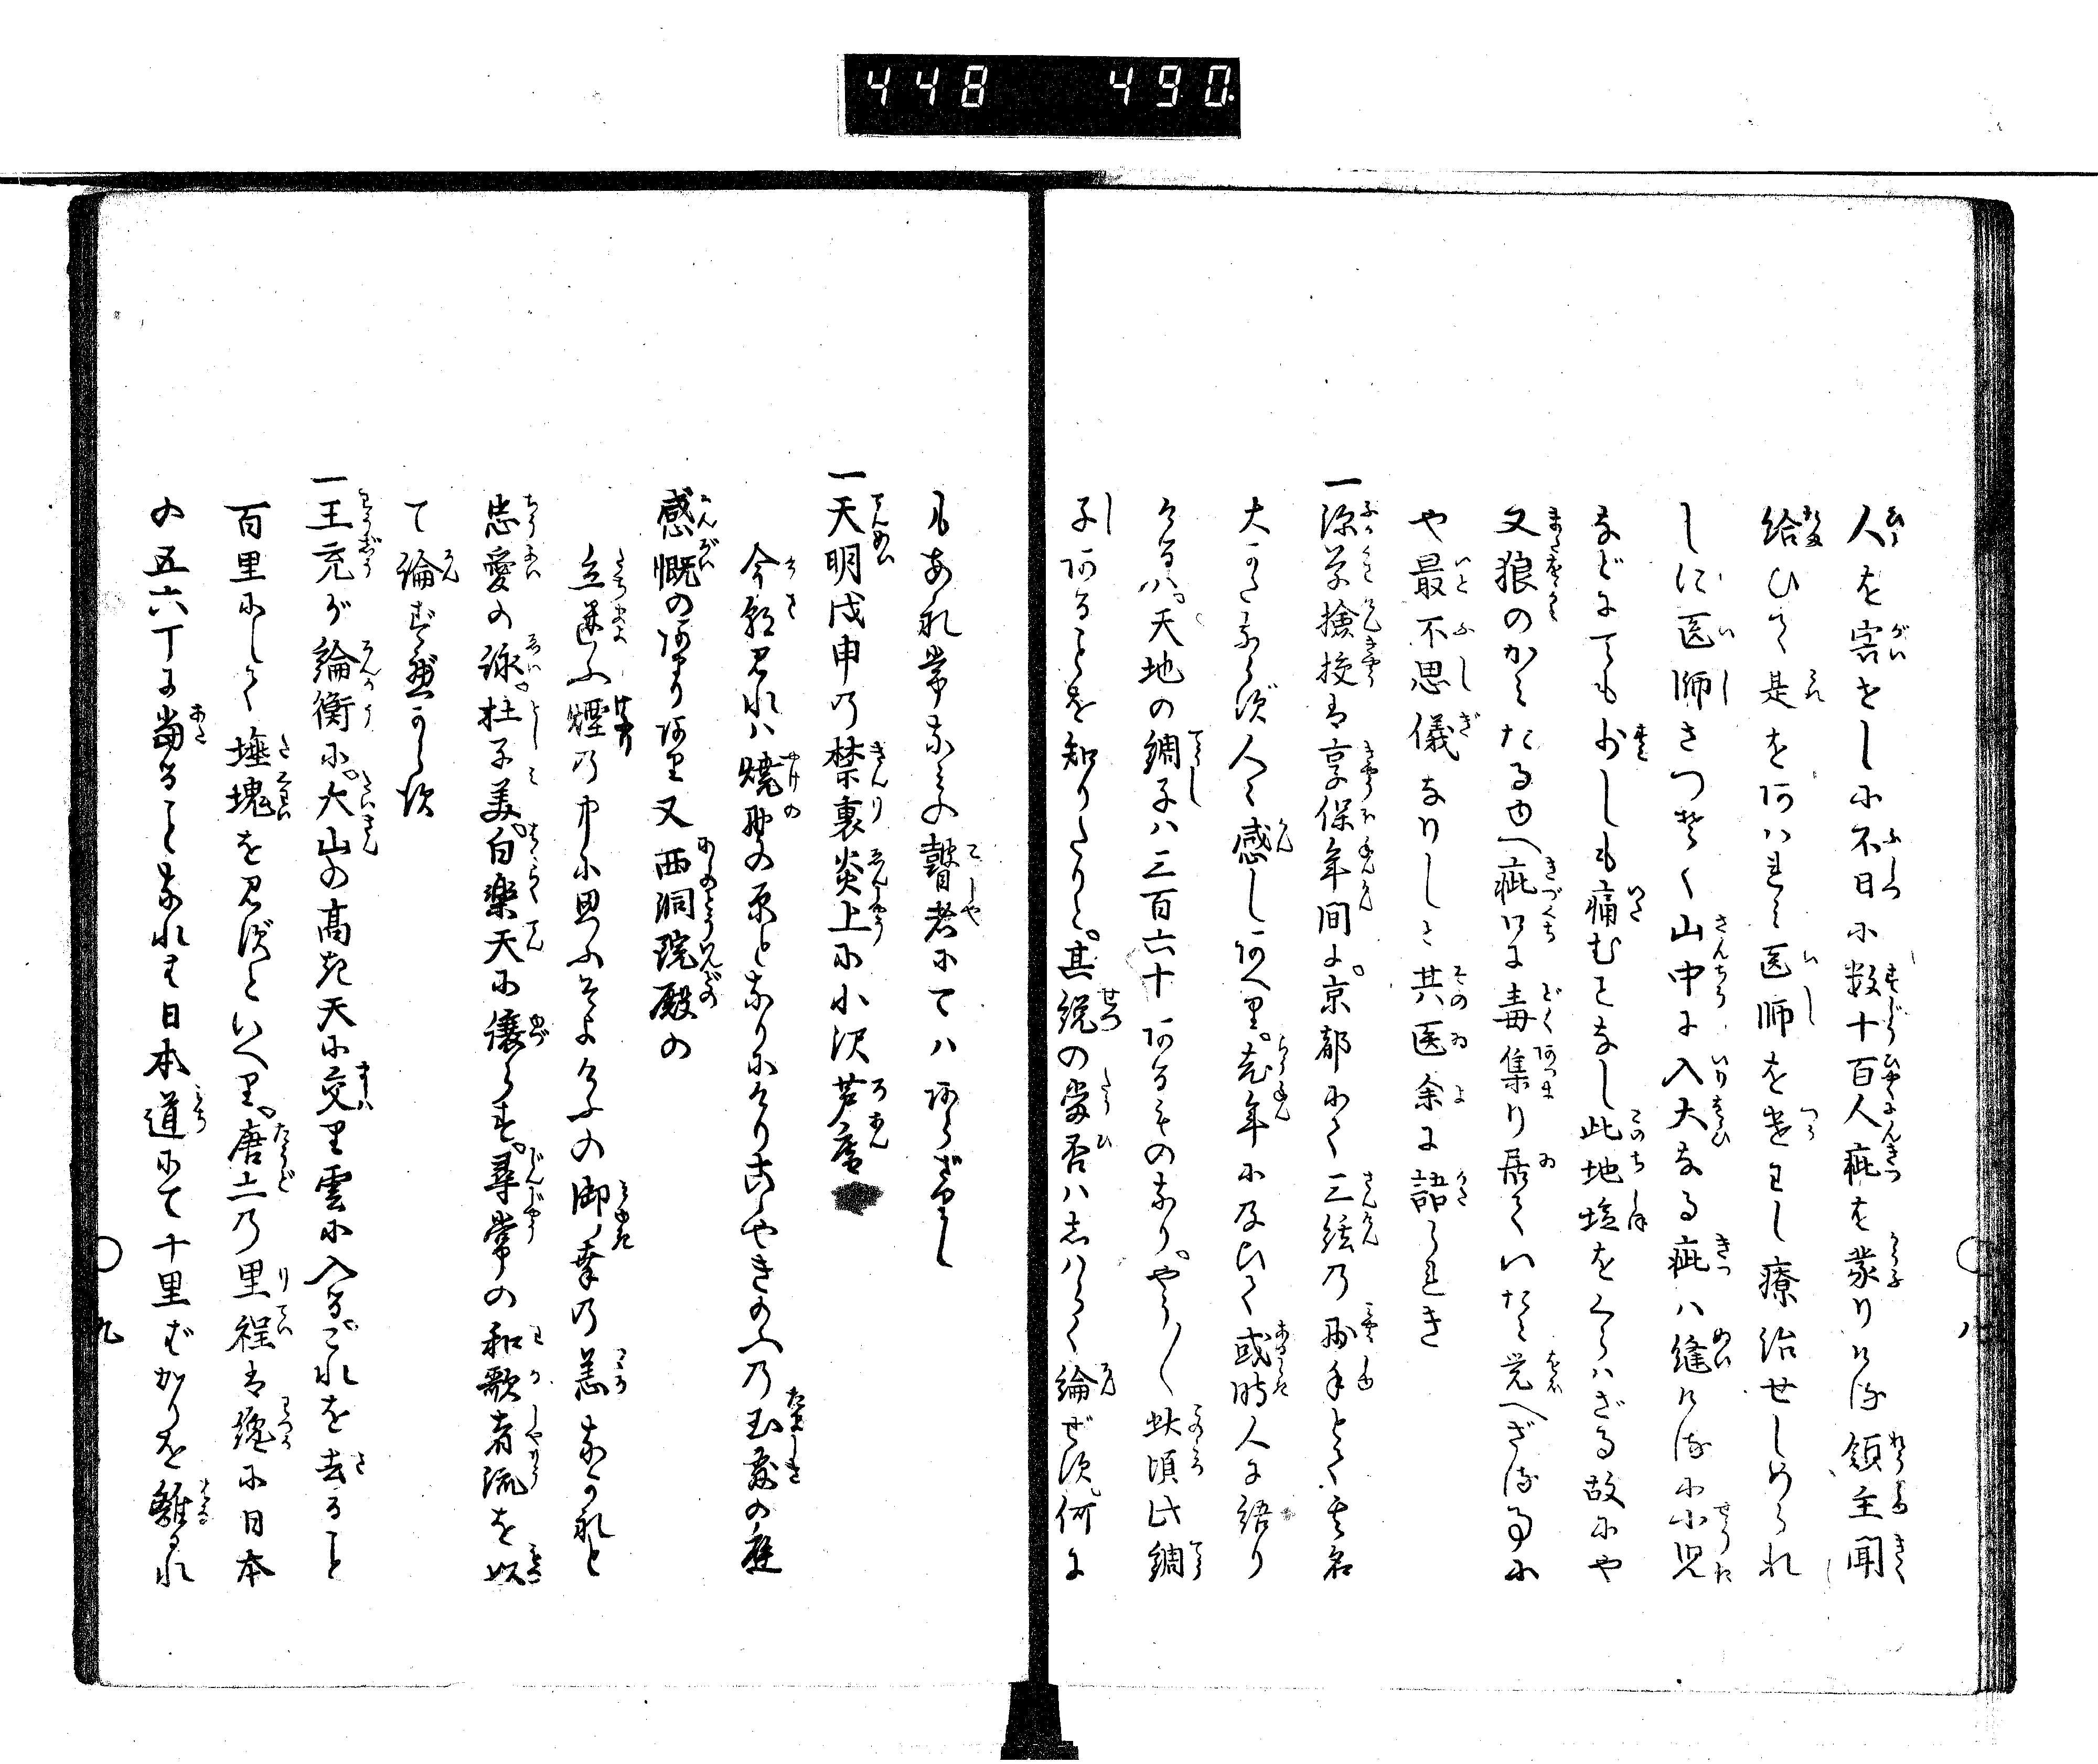 448 490
人を害せしに不日に数十百人疵を蒙りける領主聞
給ひて是をあはれミ医師を遣わし療治せしめられ
しに医師さつそく山中に入大なる疵ハ縫けるに小児
などにても少しも痛むことなし此地塩をくらハざる故にや
又狼のかミたるゆへ疵口に毒集り居ていたミ覚へざる事に
や最不思儀なりしと其医余に語られき
一深草撿挍は享保年間に京都にて三絃の上手とて其名
大かたならず人々感しあへり老年に及ひて或時人に語り
けるハ天地の調子ハ三百六十あるものなりやう〳〵此頃此調
子あることを知りたりと其説の当否ハしはらく論ぜず何に
もあれ常なミの瞽者にてハあらざるべし
一天明戊申の禁裏炎上に小沢芦庵
今朝見れハ焼野の原となりにけりこゝやきのふの玉敷の庭
感慨のあまりあり又西洞院殿の
立迷ふ煙の中に思ふそよけふの御幸の恙なかれと
忠愛の詠杜子美白楽天に譲らず尋常の和歌者流を以
て論ずべからず
一王充が論衡に大山の高き天に交り雲に入るこれを去ること
百里にして埵塊を見ずといへり唐土の里程は纔に日本
の五六丁に当ることなれは日本道にて十里ばかりを離れ
八
九